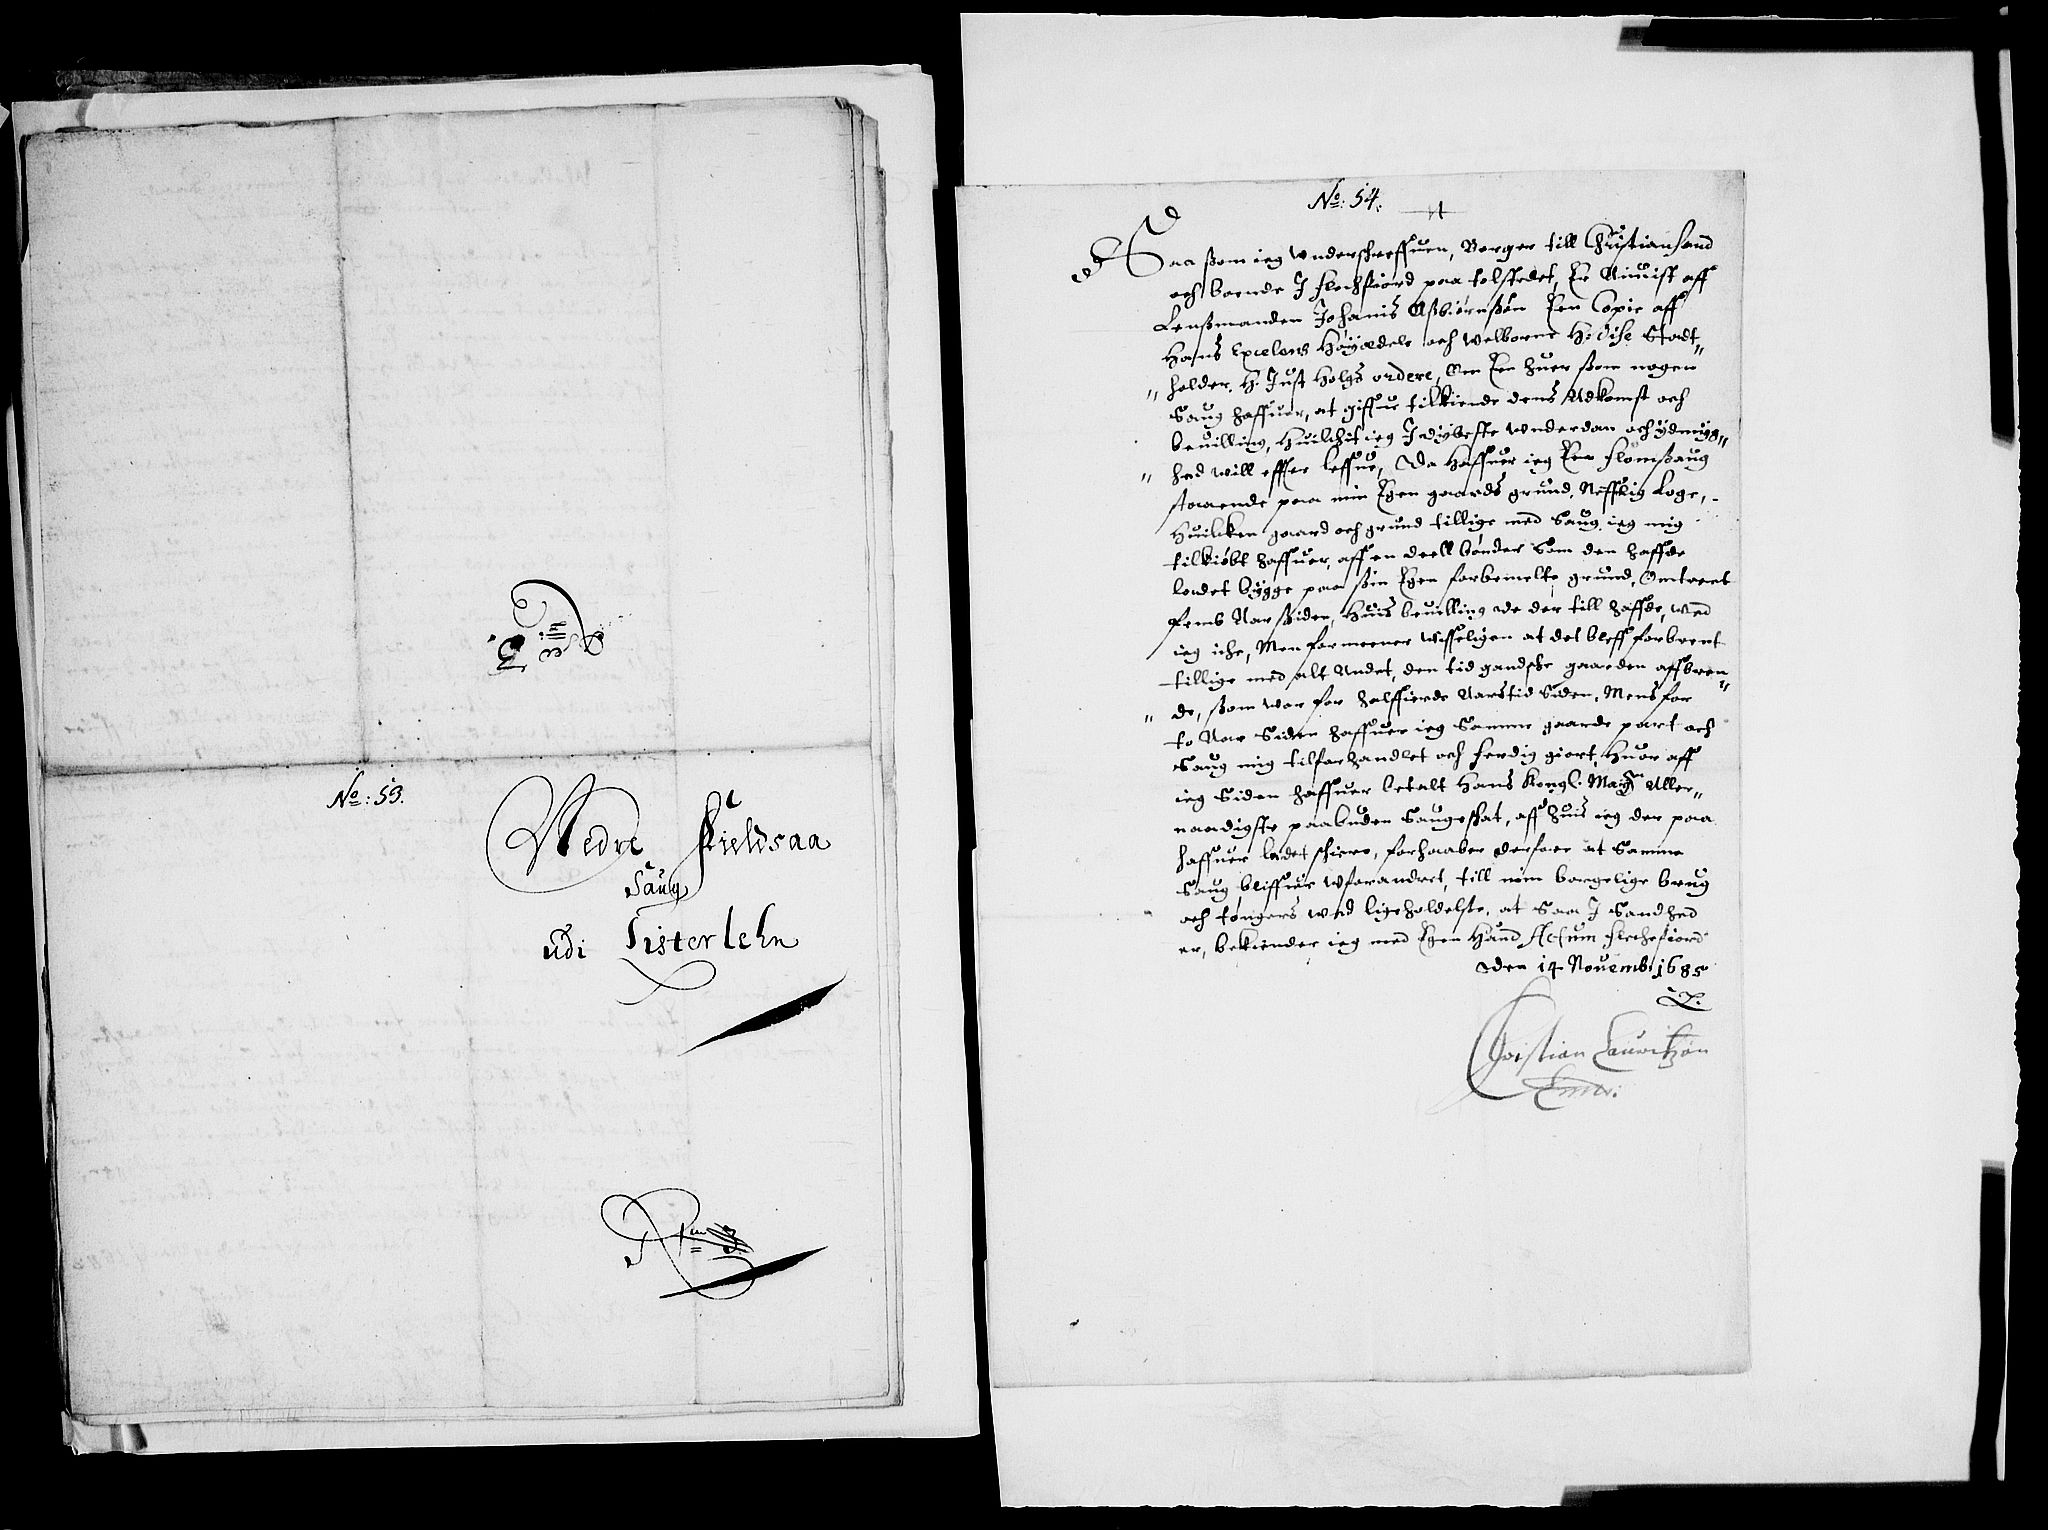 No: 53.
Nedre Kieldsaa
Saug
udi Listerlehn
No: 54.
Saa som ieg underschreffuen, Borger till Christiansand
och boende J flechfiord paa tolstedet, Er Anuist aff
Lensmanden Johanis Assbiørnssøn Een Copie aff
Hans Excelens Høyædele och welborne H: Vise Stadt„
„ holder H: Just Høgs ordere, Om Een huer som nogen
Saug haffuer, at giffue tilkiende dens Adkomst och
beuilling, Huilchit ieg J dybeste underdan och ydmyg„
„ hed will effter leffue, Da Haffuer ieg Een flomsaug
staaende paa min Egen gaards grund, Neffnlig Loge,
Huilcken gaard och grund tillige med Saug, ieg mig
tilkiøbt haffuer, aff en deell bønder Som den haffde
ladet bygge paa sin Egen forbemelte grund, Omtrent
fems Aar Siden, Huis beuilling de der till haffde, wed
ieg iche, Men formeener wisseligen at det bleff forbrent
tillige med alt Andet, den tid gandsche gaarden affbren„
„ de, som war for halffierde Aarstid Siden, Mens for
to Aar Siden haffuer ieg Samme gaarde part och
Saug mig tilforhandlet och ferdig giort, Huor aff
ieg Siden haffuer betalt Hans Kongl. May: Aller„
naadigste paabuden Saugeskat, aff huis ieg der paa
haffuer ladet schiere, forhaaber derfore at Samme
Saug bliffuer uforandret, till min borgelige brug
och tongers wed ligeholdelse, at Saa J Sandhed
er, bekiender ieg med Egen Haand Actum flechefiord
den 14 Nouemb: 1685
Christian Lauritzøn